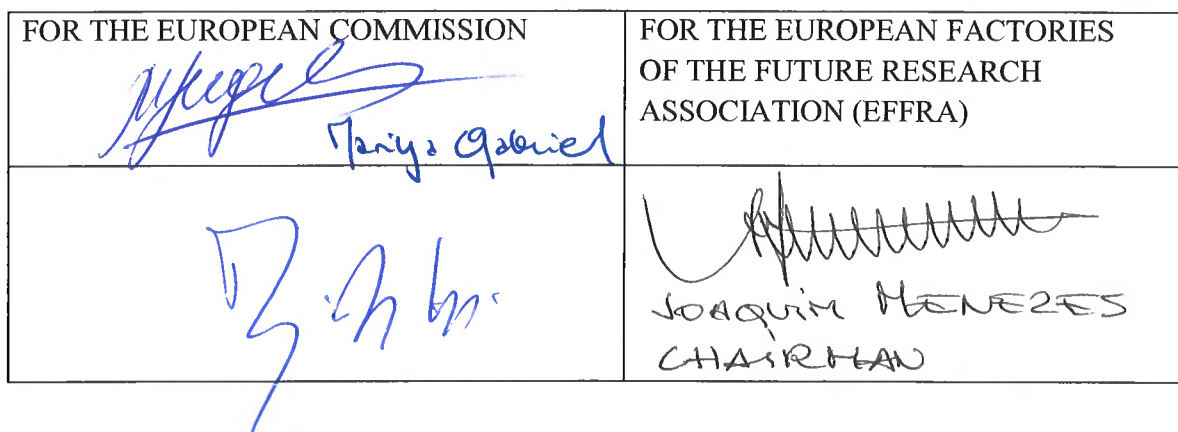 FOR THE EUROPEAN COMMISSION
Mariya Gabriel
FOR THE EUROPEAN FACTORIES
OF THE FUTURE RESEARCH
ASSOCIATION (EFFRA)
JOAQUIM MENEZES
CHAIRMAN